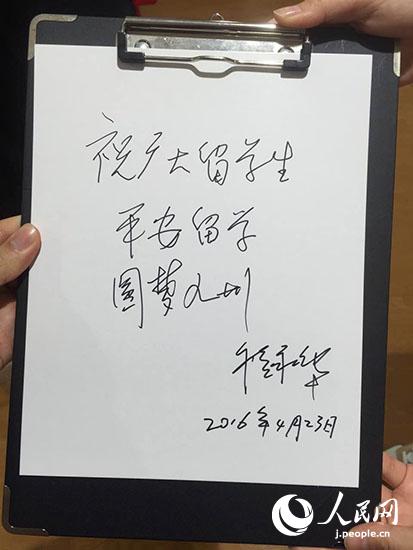 祝广大留学生
平安留学
圆梦
程永华
2016年4月23日
人民网
j.people.cn